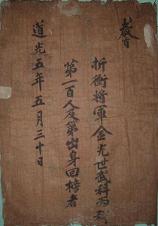 教旨
折衝將軍金光世武科丙科
第一百人及第出身回榜者
道光五年五月三十日